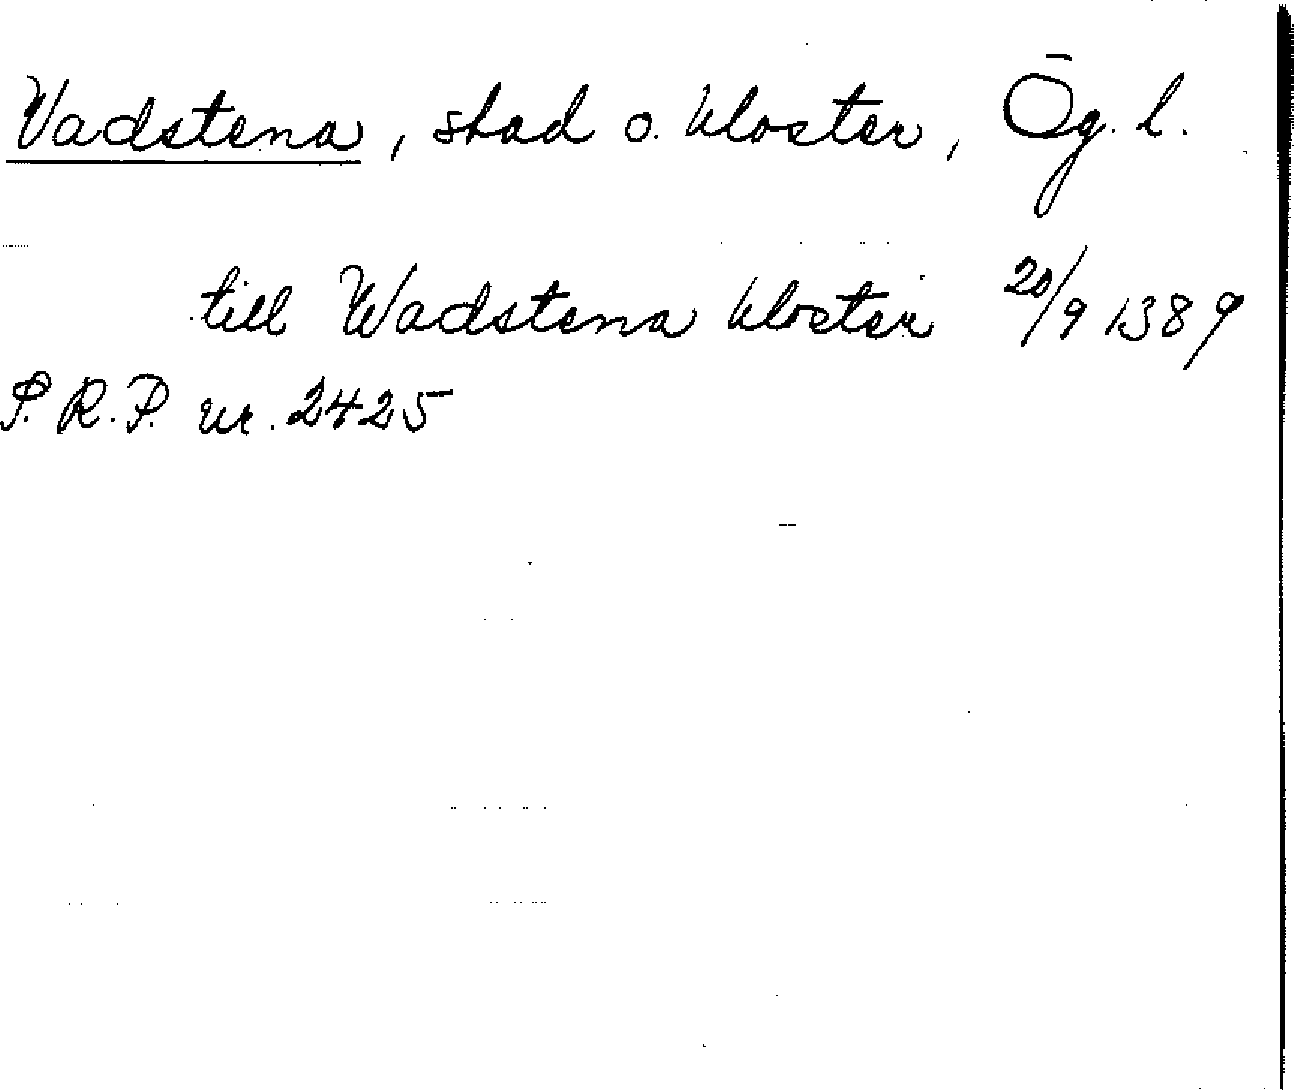 Vadstena, stad o. kloster, Ög. l.
till Wadstena kloster 20/9 1389
S.R.P. nr. 2425